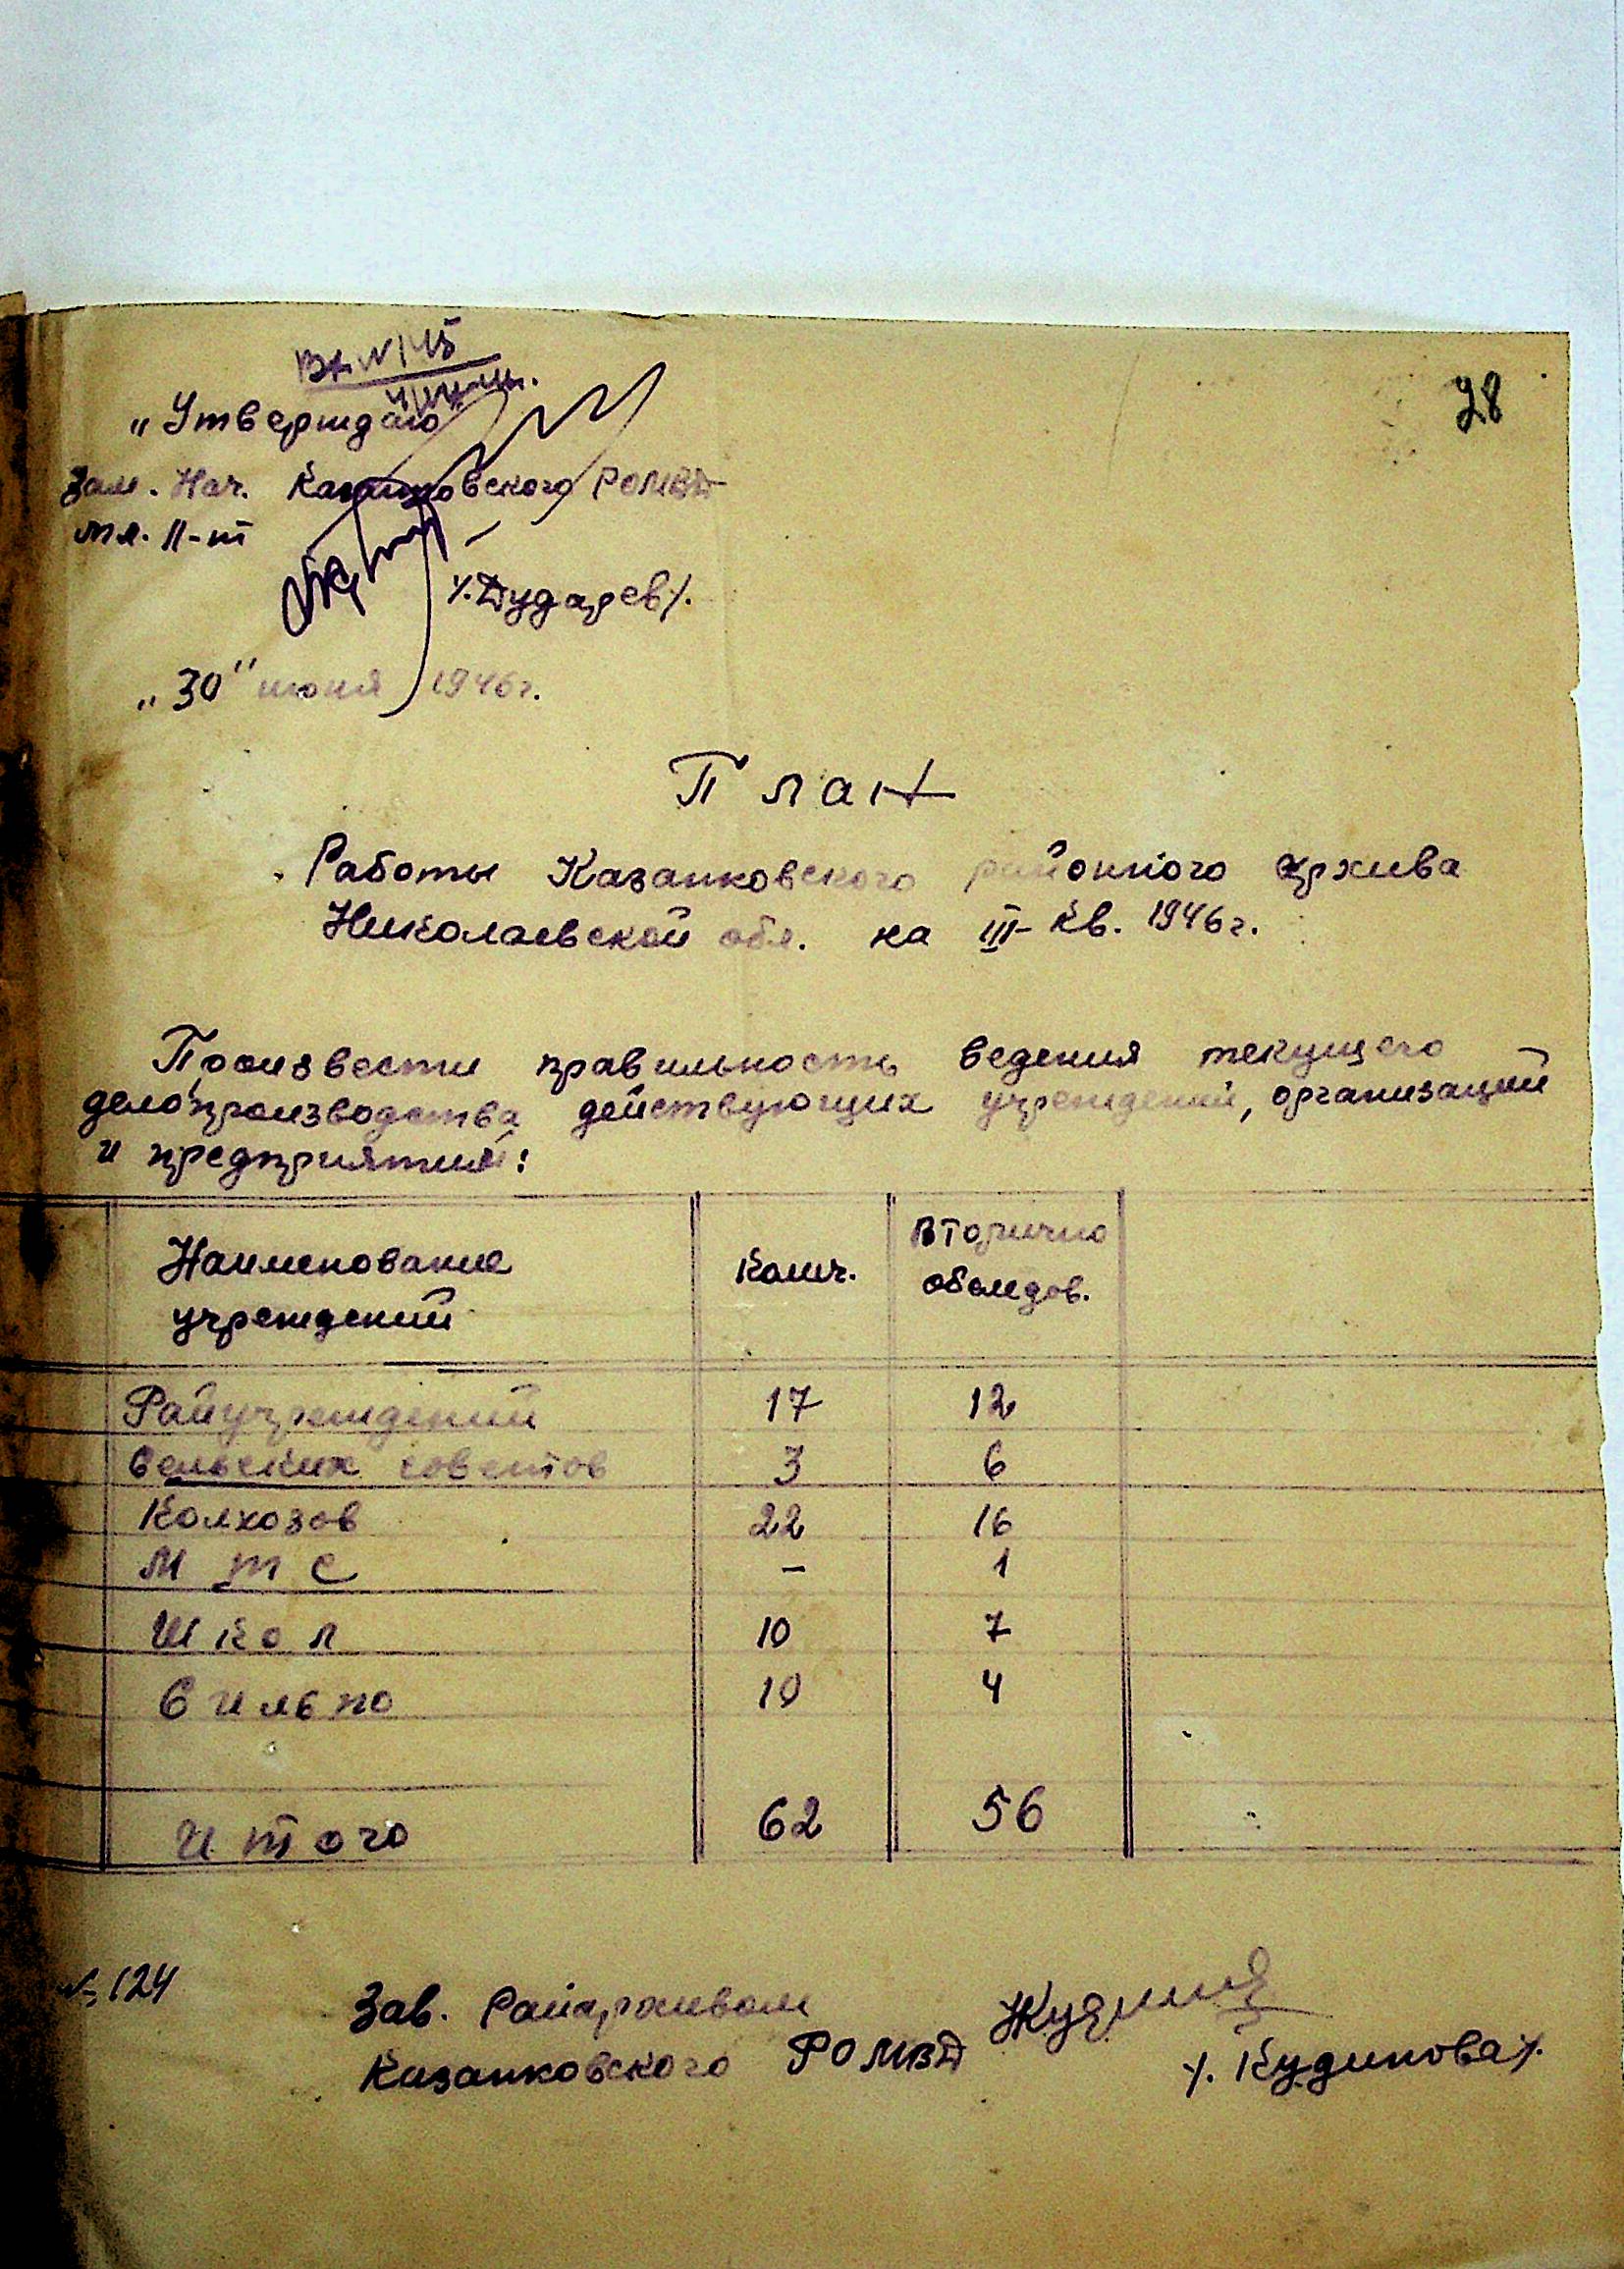 Вх. N 145
28
„Утверждаю
Зам. Нач. Казанковского РОМВД
мл. л-т
/. Дударев/.
„30" июня 1946г.
План
Работы Казанковского районного архива
Николаевской обл. на III- Кв. 1946г.
Произвести правильность ведения текущего
делопроизводства действующих учреждений, организаций
и предприятий:
Наименование учреждений Колич. Вторично обследов.
Райучреждений 17 12
Сельских советов 3 6
Колхозов 22 16
М Т С – 1
Школ 10 7
Сильпо 10 4
Итого 62 56
№ 124
Зав. Райархивом
Казанковского РОМВД /. Кудинова/.